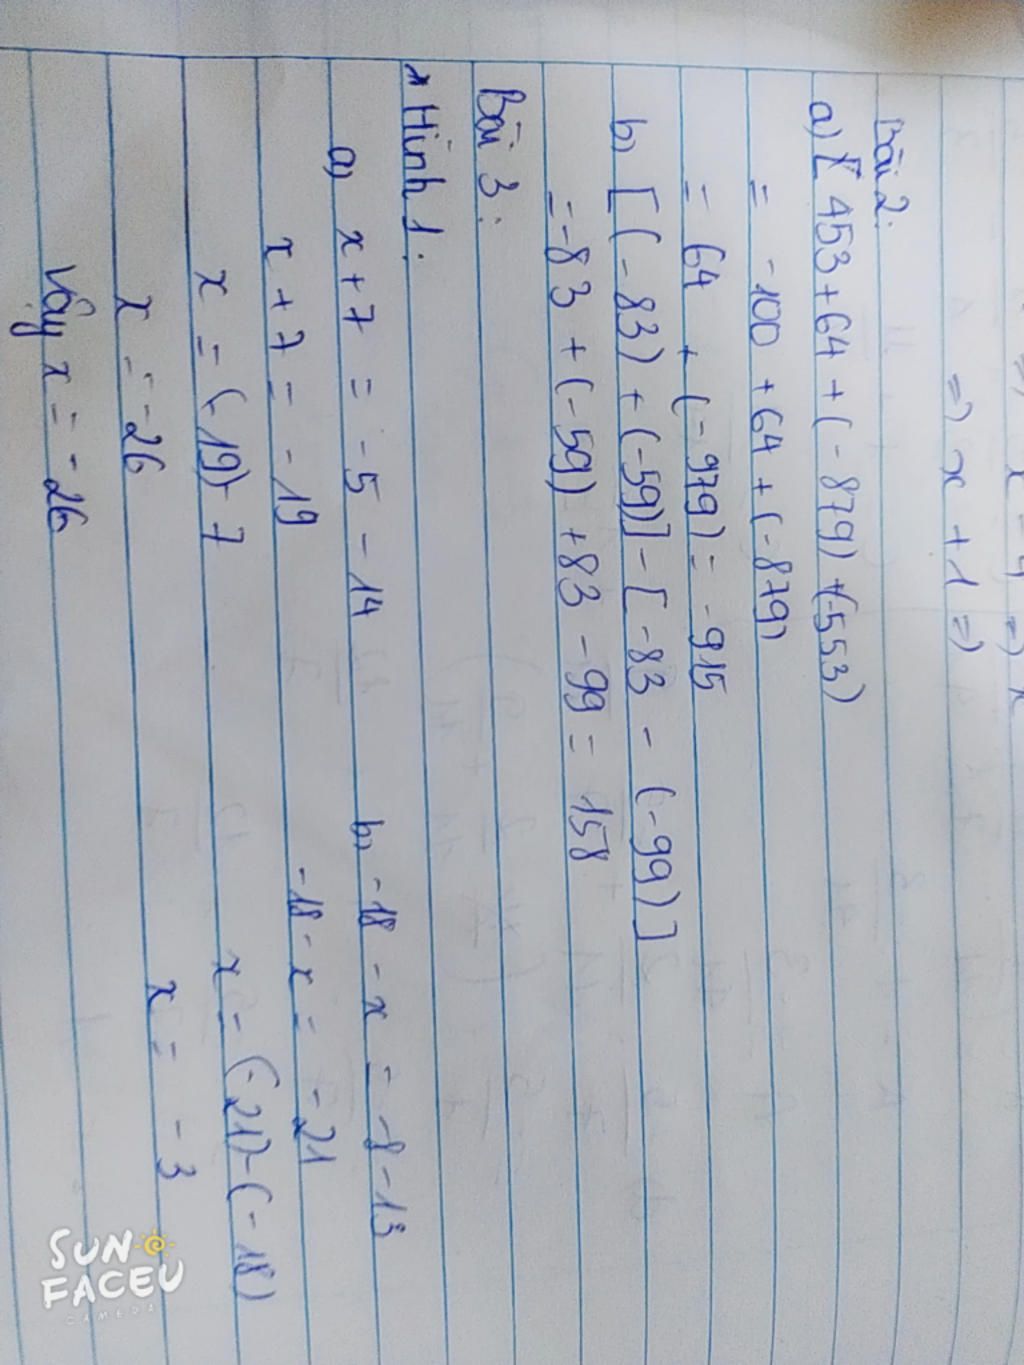 => x + 1 =>
Bài 2:
a) [ 453 + 64 + (-879) + (-553)
= -100 + 64 + (-879)
= 64 + (-979) = -915
b) [(-83) + (-59)] - [-83 - (-99)]
= -83 + (-59) + 83 - 99 = 158
Bài 3:
* Hình 1:
a) x + 7 = -5 - 14
x + 7 = -19
x = (-19) - 7
x = -26
Vậy x = -26
b) -18 - x = -8 - 13
-18 - x = -21
x = (-21) - (-18)
x = -3
SUN
FACEU
CAMERA